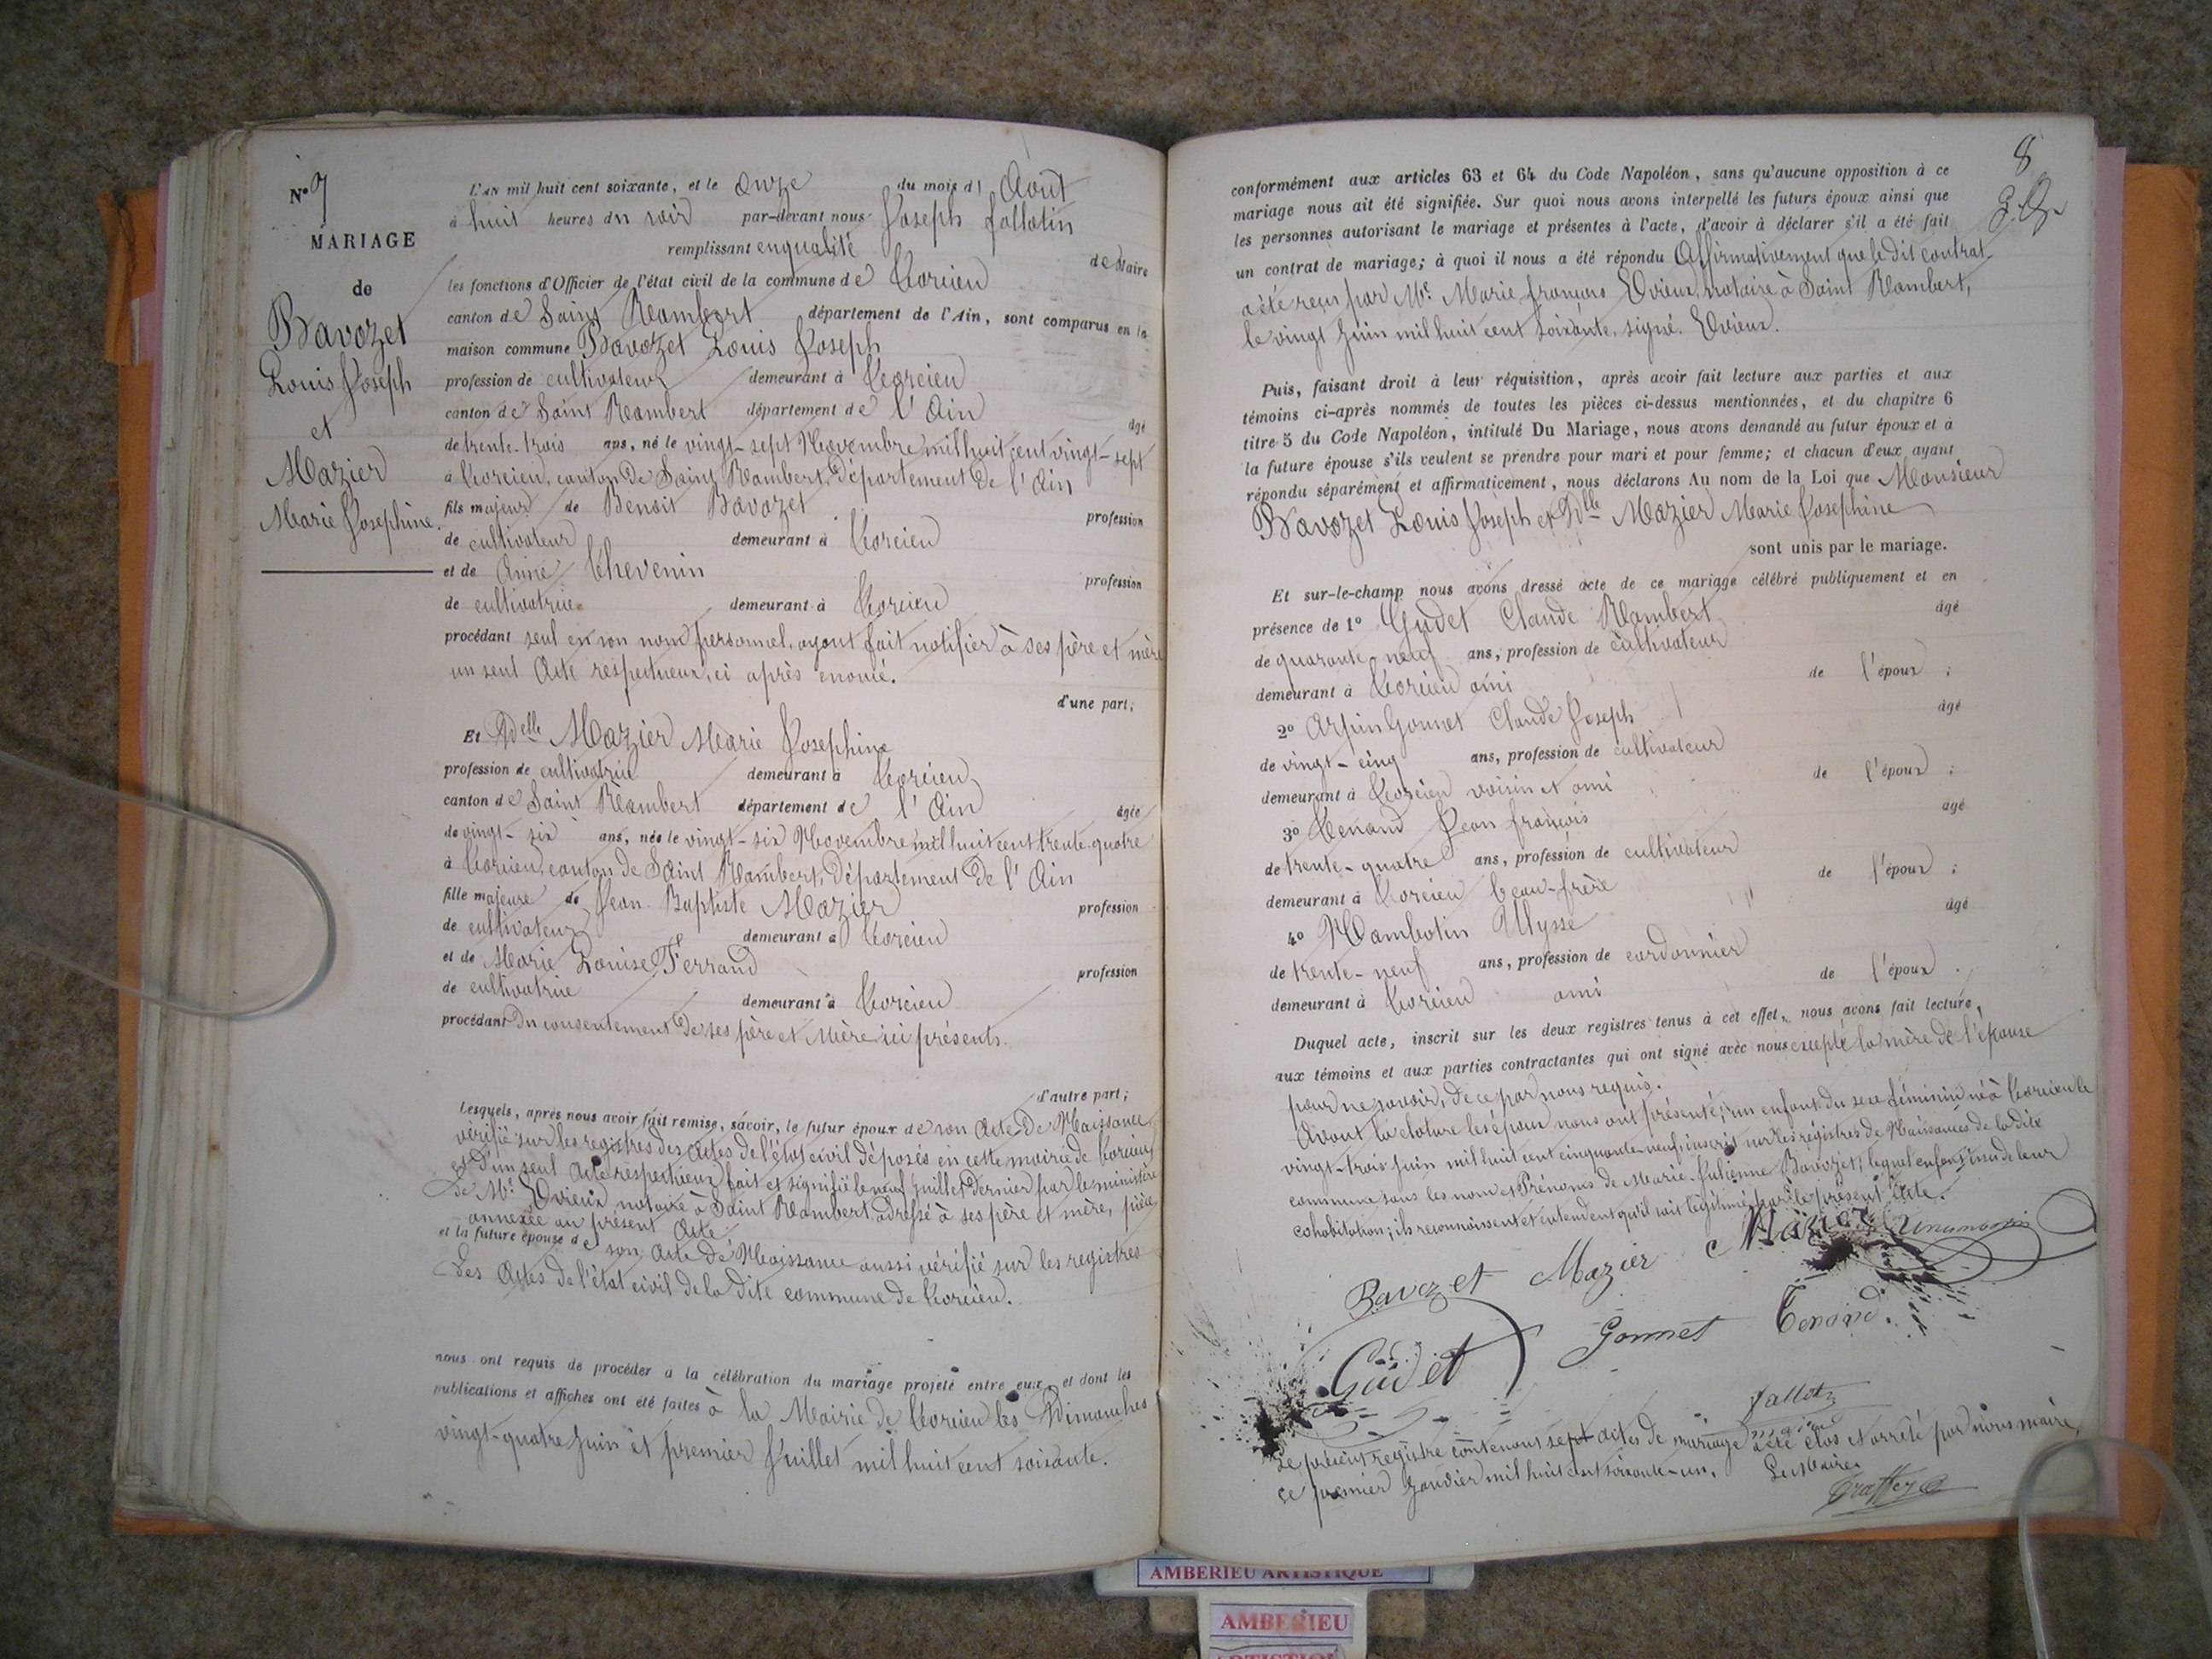 N° 7
MARIAGE
de
Bavozet
Louis Joseph
et
Mazier
Marie Josephine.
L'AN mil huit cent soixante, et le onze du mois d' Août
à huit heures du soir par-devant nous Joseph fallatin
remplissant en qualité de Maire
les fonctions d'Officier de l'état civil de la commune de Torcieu
canton de Saint Rambert département de l'Ain, sont comparus en la
maison commune Bavozet Louis Joseph
profession de cultivateur demeurant à Torcieu
canton de Saint Rambert département de l'Ain âgé
de trente-trois ans, né le vingt-sept Novembre mil huit cent vingt-sept
à Torcieu, canton de Saint Rambert, Département de l'Ain
fils majeur de Benoit Bavozet profession
de cultivateur demeurant à Torcieu
et de Anne Thevenin profession
de cultivatrice demeurant à Torcieu
procédant seul en son nom personnel, ayant fait notifier à ses père et mère
un seul Acte respectueux, ci après énoncé.
d'une part;
Et Delle Mazier Marie Josephine
profession de cultivatrice demeurant à Torcieu
canton de Saint Rambert département de l'Ain âgée
de vingt-six ans, née le vingt-six Novembre mil huit cent trente-quatre
à Torcieu, canton de Saint Rambert, Département de l'Ain
fille majeure de Jean Baptiste Mazier profession
de cultivateur demeurant à Torcieu
et de Marie Louise Ferrand profession
de cultivatrice demeurant à Torcieu
procédant du consentement de ses père et mère ici présents.
d'autre part;
Lesquels, après nous avoir fait remise, savoir, le futur époux de son Acte de Naissance
vérifié sur les registres des actes de l'état civil déposés en cette mairie de Torcieu,
et d'un seul Acte respectueux fait et signifié le neuf juillet dernier par le ministère
de Me Dvrieux notaire à Saint Rambert adressé à ses père et mère, pièce
annexée au présent Acte
et la future épouse de son Acte de Naissance aussi vérifié sur les registres
des Actes de l'état civil de la dite commune de Torcieu.
nous ont requis de procéder à la célébration du mariage projeté entre eux, et dont les
publications et affiches ont été faites à la Mairie de Torcieu les Dimanches
vingt-quatre Juin et premier Juillet mil huit cent soixante.
8
conformément aux articles 63 et 64 du Code Napoléon, sans qu'aucune opposition à ce
mariage nous ait été signifiée. Sur quoi nous avons interpellé les futurs époux ainsi que
les personnes autorisant le mariage et présentes à l'acte, d'avoir à déclarer s'il a été fait
un contrat de mariage; à quoi il nous a été répondu Affirmativement que le dit contrat
a été reçu par Me Marie françois Dvrieux, notaire à Saint Rambert,
le vingt Juin mil huit cent soixante, signé. Dvrieux.
Puis, faisant droit à leur réquisition, après avoir fait lecture aux parties et aux
témoins ci-après nommés de toutes les pièces ci-dessus mentionnées, et du chapitre 6
titre 5 du Code Napoléon, intitulé Du Mariage, nous avons demandé au futur époux et à
la future épouse s'ils veulent se prendre pour mari et pour femme; et chacun d'eux ayant
répondu séparément et affirmativement, nous déclarons Au nom de la Loi que Monsieur
Bavozet Louis Joseph et Delle Mazier Marie Josephine
sont unis par le mariage.
Et sur-le-champ nous avons dressé acte de ce mariage célébré publiquement et en
présence de 1° Gudet Claude Rambert âgé
de quarante-neuf ans, profession de cultivateur
demeurant à Torcieu ami de l'époux ;
2° Arpin Gonnet Claude Joseph âgé
de vingt-cinq ans, profession de cultivateur
demeurant à Torcieu voisin et ami de l'époux ;
3° Tenand Jean françois âgé
de trente-quatre ans, profession de cultivateur
demeurant à Torcieu beau-frère de l'époux ;
4° Mambotin Ulysse âgé
de trente-neuf ans, profession de cordonnier
demeurant à Torcieu ami de l'époux .
Duquel acte, inscrit sur les deux registres tenus à cet effet, nous avons fait lecture
aux témoins et aux parties contractantes qui ont signé avec nous excepté la mère de l'épouse
pour ne savoir, de ce par nous requis.
Avant la cloture les époux nous ont présenté, un enfant du sexe féminin né à Torcieu le
vingt-trois Juin mil huit cent cinquante-neuf, inscrit sur les registres de Naissances de la dite
commune sous les nom et Prénoms de Marie-Julienne Bavozet; lequel enfant issu de leur
cohabitation; ils reconnaissent et entendent qu'il soit légitimé par le présent Acte.
Bavozet Mazier Mazier
Gudet Gonnet Tenand.
fallatin
maire
Le présent registre contenant sept actes de mariage a été clos et arrêté par nous maire,
ce premier Janvier mil huit cent soixante-un. Le Maire
AMBERIEU ARTISTIQUE
AMBERIEU
ARTISTIQUE